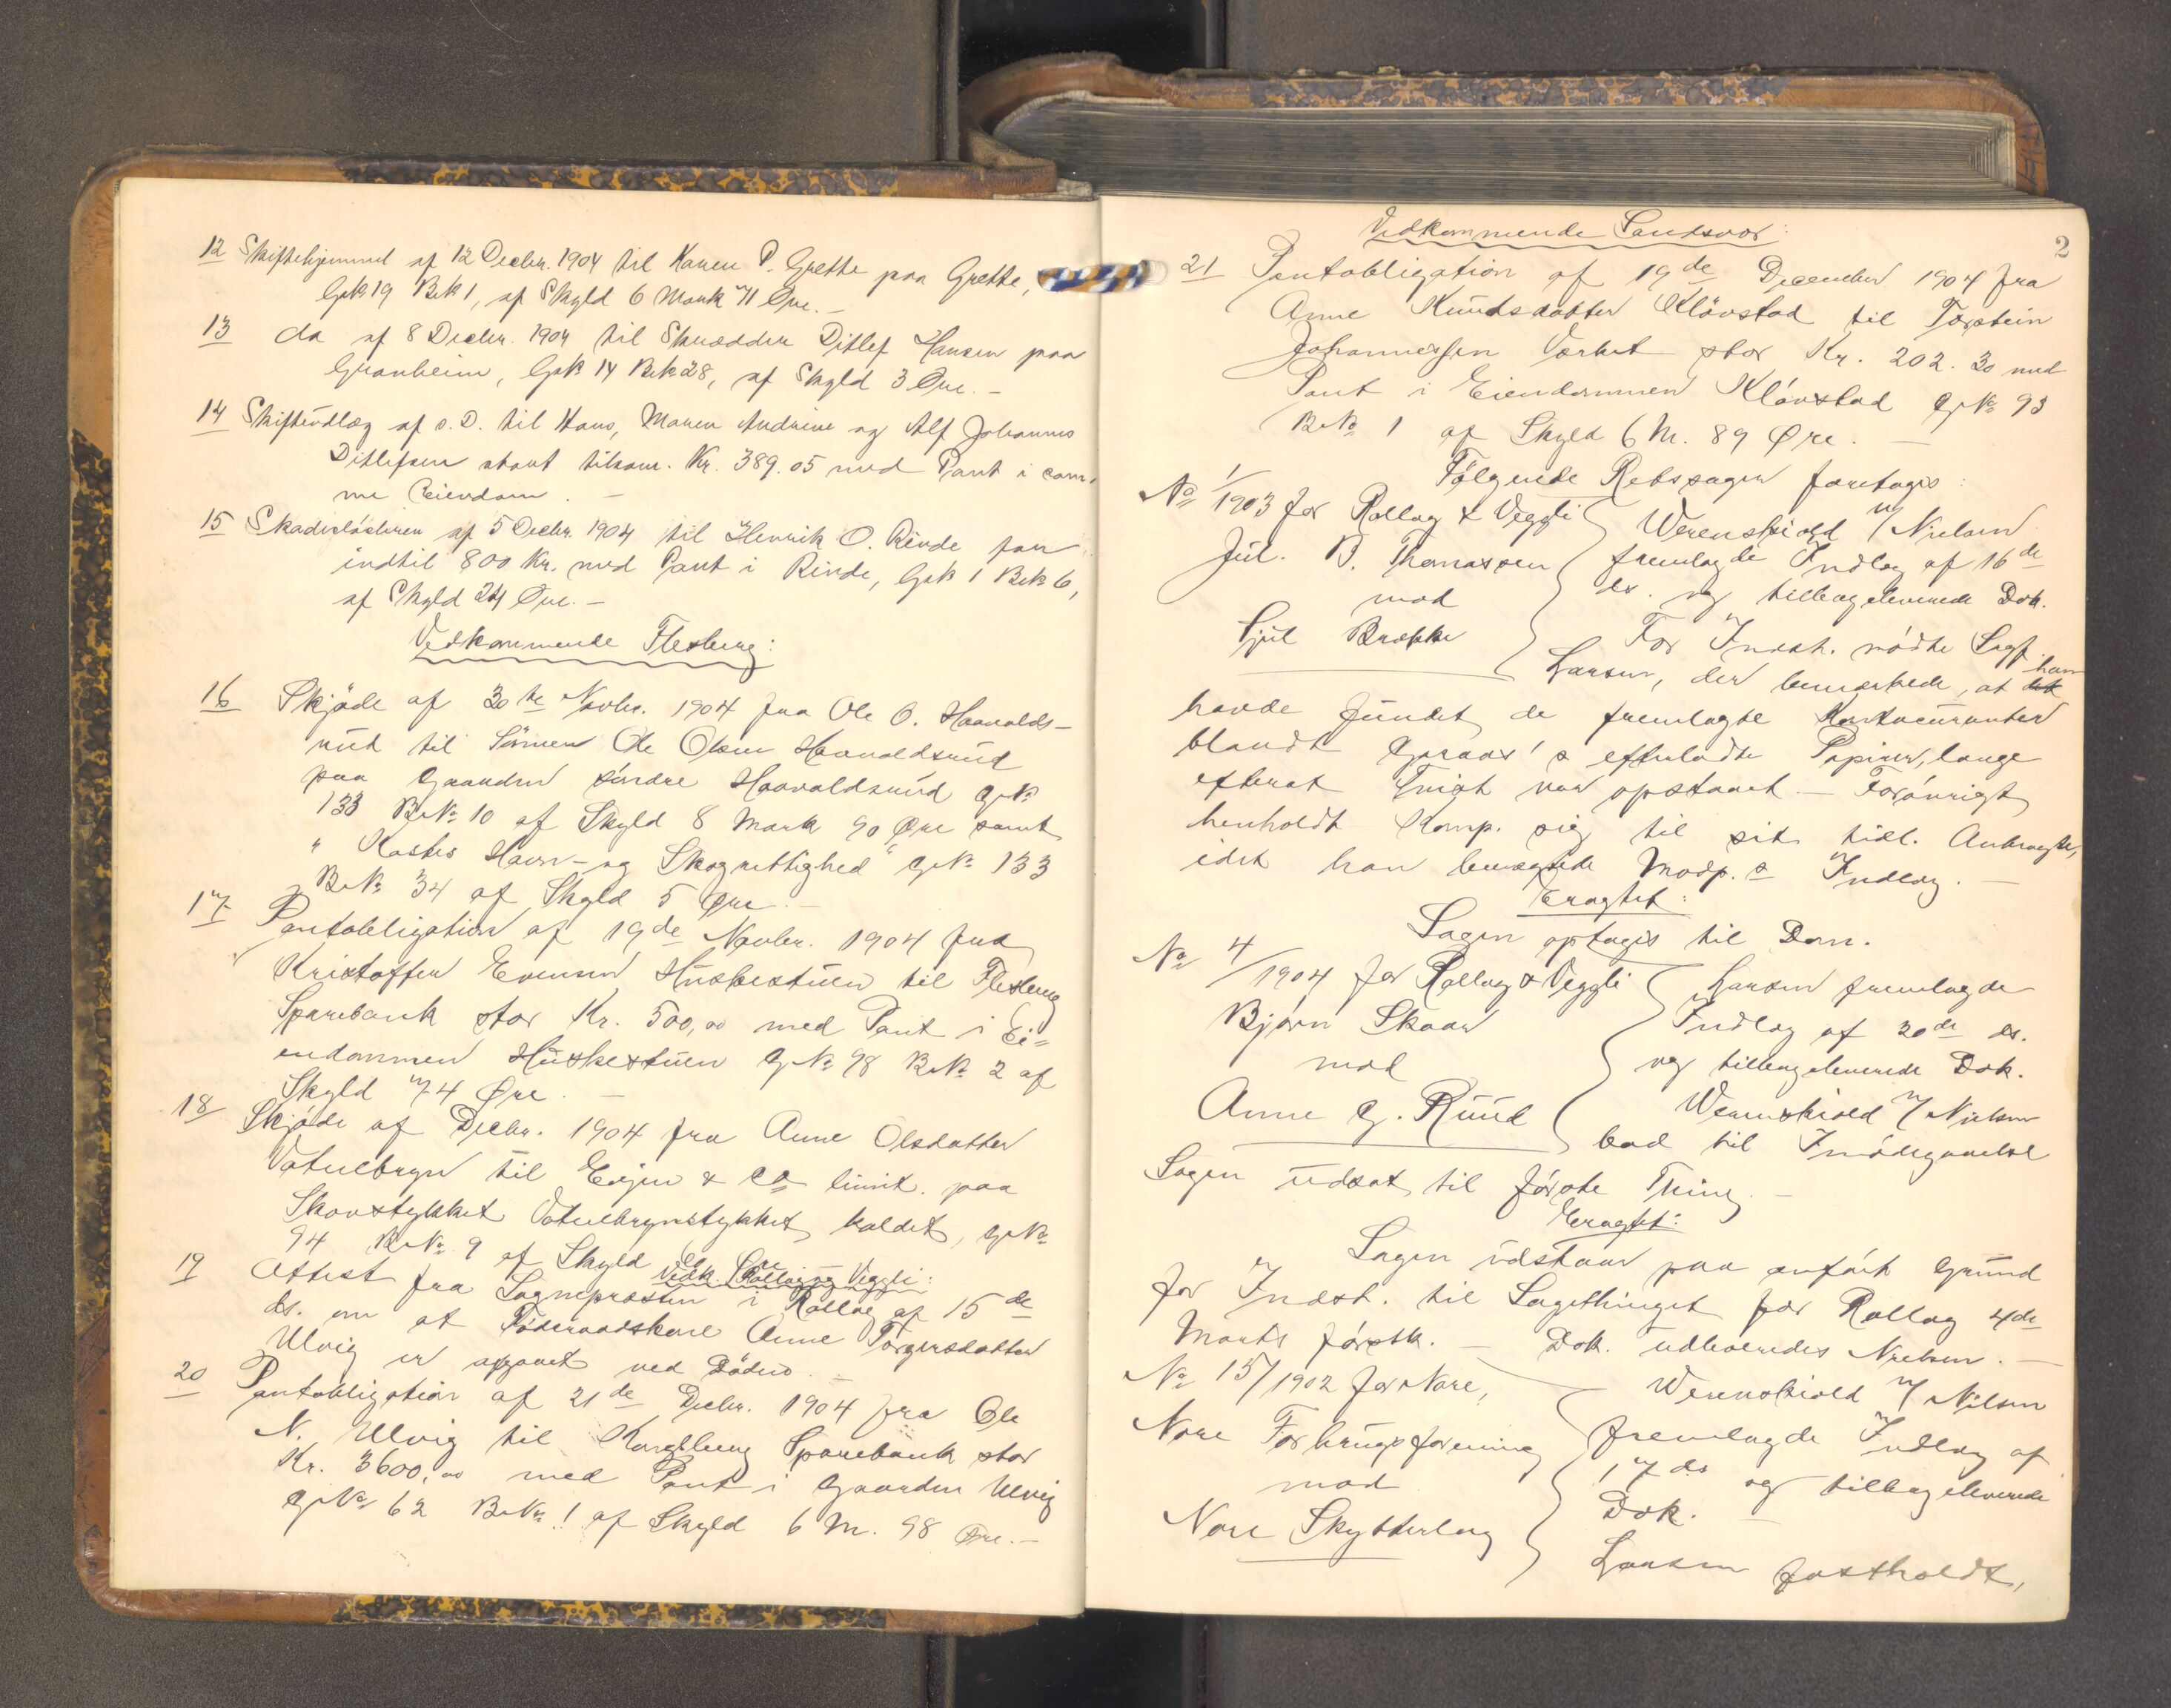 12 Skiftehjemmel af 12 Decbr. 1904 til Karen P. Grette paa Grette,
Gak 19 Bk 1, af Skyld 6 Mark 71 Øre. —
13 do af 8 Decbr. 1904 til Skrædder Ditlef Hansen paa
Granheim, Gak 14 Bk 28, af Skyld 3 Øre. —
14 Skifteudlæg af s. D. til Hans, Maren Andrine og Alf Johannes
Ditlefsen stort tilsam. Kr. 389.05 med Pant i sam-
me Eiendom. —
15 Skadesløsbrev af 5 Decbr. 1904 til Henrik O. Rinde for
indtil 800 Kr. med Pant i Rinde, Gak 1 Bk 6,
af Skyld 24 Øre. —
Vedkommende Flesberg:
16 Skjøde af 30te Novbr. 1904 fra Ole O. Haavalds-
rud til Sønnen Ole Olsen Haavaldsrud
paa Gaarden søndre Haavaldsrud G.No
133 B.No 10 af Skyld 8 Mark 90 Øre samt
" Kastes Havn- og Skogrettighed" G.No 133
B.No 34 af Skyld 5 Øre. —
17 Pantobligation af 19de Novbr. 1904 fra
Kristoffer Evensen Huskestuen til Flesberg
Sparebank stor Kr. 500,00 med Pant i Ei=
endommen Huskestuen G.No 98 B.No 2 af
Skyld 74 Øre. —
18 Skjøde af Decbr. 1904 fra Anne Olsdatter
Vatnebryn til Eijer & Co limit. paa
Skovstykket Vatnebrynstykket kaldet, G.No
94 B.No 9 af Skyld Øre
Vedk. Rollag og Veggli:
19 Attest fra Sognepræsten i Rollag af 15de
ds. om at Føderaadskone Anne Torgersdatter
Ulvig er afgaaet ved Døden. —
20 Pantobligation af 21de Decbr. 1904 fra Ole
N. Ulvig til Kongsberg Sparebank stor
Kr. 3600,00 med Pant i Gaarden Ulvig
G.No 62 B.No 1 af Skyld 6 M. 98 Øre. —
2
Vedkommende Sandsvær:
21 Pantobligation af 19de December 1904 fra
Anne Knudsdatter Kløvstad til Torstein
Johannessen Værket stor Kr. 202.30 med
Pant i Eiendommen Kløvstad G.No 93
B.No 1 af Skyld 6 M. 89 Øre. —
Følgende Retssager foretoges:
No 1/1903 for Rollag & Veggli
Jul. B. Thomassen
mod
Sjul Brække
Werenskiold v/ Nielsen
fremlagde Indlæg af 16de
ds. og tilbageleverede Dok.
For Indst. mødte Sagf.
Larsen, der bemærkede, at han
havde fundet de fremlagte Kontocuranter
blandt Graver's efterladte Papirer, længe
efterat Tvist var opstaaet. — Forøvrigt
henholdt Komp. sig til sit tidl. Anbragte,
idet han benægtede Modp.s Indlæg. —
Eragtet:
Sagen optages til Dom.
No 4/1904 for Rollag & Veggli
Bjørn Skaar
mod
Anne G. Ruud
Larsen fremlagde
Indlæg af 20de ds.
og tilbageleverede Dok.
Werenskiold v/ Nielsen
bad til Imødegaaelse
Sagen udsat til første Thing. —
Eragtet:
Sagen udstaar paa anført Grund
for Indst. til Sagethinget for Rollag 4de
Marts førstk. — Dok. udleveredes Nielsen. —
No 15/1902 for Nore,
Nore Forbrugsforening
mod
Nore Skytterlag
Werenskiold v/ Nilsen
fremlagde Indlæg af
17 ds og tilbageleverede
Dok. —
Larsen fastholdt,